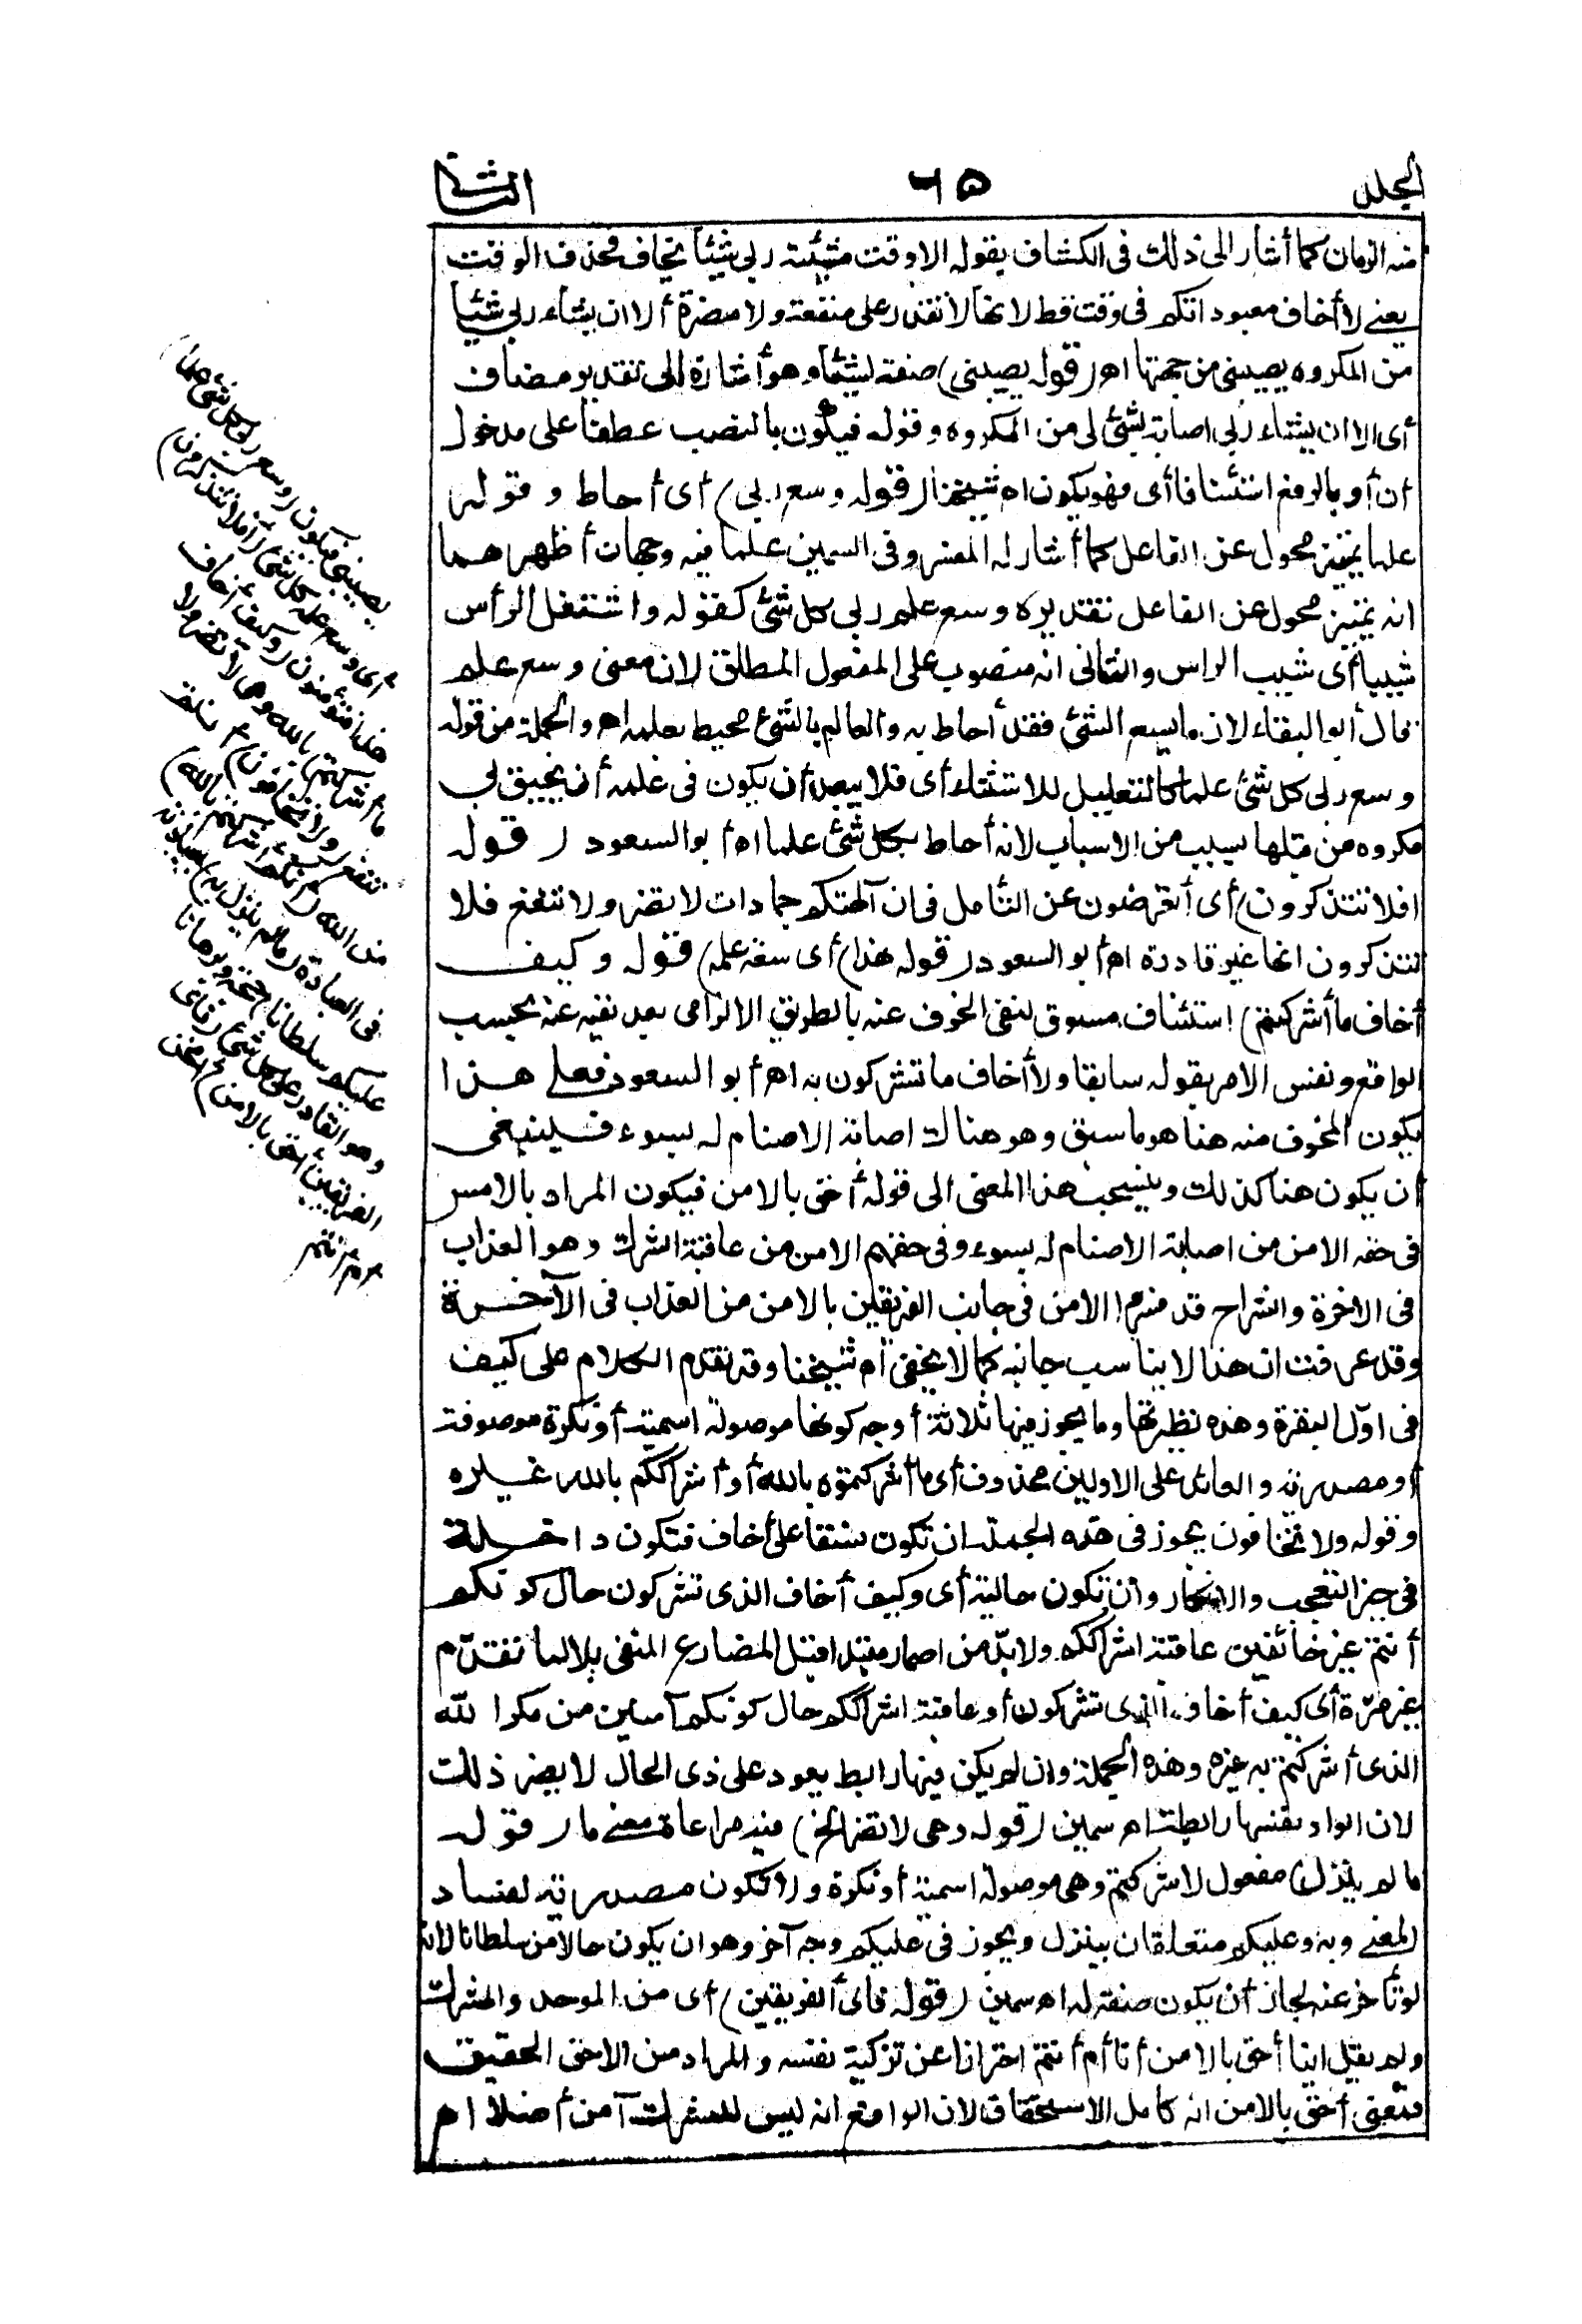 المجلد ٦٥ الثانى
منه الزمان كما أشار الى ذلك فى الكشاف بقوله الا وقت مشيئة ربى شيئا يخاف فحذف الوقت
يعنى لا أخاف معبوداتكم فى وقت قط لانها لا تقدر على منفعة ولا مضرة ألا ان يشاء ربى شيئا
من المكروه يصيبنى من جهتها اه (قوله يصيبنى) صفة لشيئا وهو أشارة الى تقدير مضاف
أى الا ان يشاء ربى اصابة شئ لى من المكروه وقوله فيكون بالنصب عطفا على مدخول
أن أو بالرفع استئنافا أى فهو يكون اه شيخنا (قوله وسع ربى) أى أحاط وقوله
علما تمييز محول عن الفاعل كما أشار له المفسر وفى السمين علما فيه وجهان أظهرهما
انه تمييز محول عن الفاعل تقديره وسع علم ربى كل شئ كقوله واشتعل الرأس
شيبا أى شيب الراس والثانى انه منصوب على المفعول المطلق لان معنى وسع علم
قال أبو البقاء لان ما يسع الشئ فقد أحاط به والعالم بالشئ محيط بعلمه اه والجملة من قوله
وسع ربى كل شئ علما كالتعليل للاستثناء أى فلا يبعد أن يكون فى علمه أن يحيق بى
مكروه من قبلها بسبب من الاسباب لانه أحاط بكل شئ علما اه أبو السعود (قوله
افلا تتذكرون) أى أتعرضون عن التأمل فى ان آلهتكم جمادات لا تضر ولا تنفع فلا
تتذكرون انها غير قادرة اه أبو السعود (قوله هذا) أى سعة علمه) قوله وكيف
أخاف ما أشركتم) استئناف مسوق لنفى الخوف عنه بالطريق الالزامى بعد نفيه عنه بحسب
الواقع ونفس الامر بقوله سابقا ولا أخاف ما تشركون به اه أبو السعود فعلى هذا
يكون المخوف منه هنا هو ما سبق وهو هناك اصابة الاصنام له بسوء فلينبغى
أن يكون هنا كذلك وينسحب هذا المعنى الى قوله أحق بالامن فيكون المراد بالامن
فى حقه الامن من اصابة الاصنام له بسوء وفى حقهم الامن من عاقبة الشرك وهو العذاب
فى الاخرة والشراح قد فسروا الامن فى جانب الفريقين بالامن من العذاب فى الآخرة
وقد عرفت ان هذا لا يناسب جانبه كما لا يخفى اه شيخنا وقد تقدم الكلام على كيف
فى اوّل البقرة وهذه نظيرتها وما يجوز فيها ثلاثة أوجه كونها موصولة اسمية أو نكرة موصوفة
أو مصدرية والعائد على الاولين محذوف أى ما أشركتموه بالله أو أشراككم بالله غيره
وقوله ولا تخافون يجوز فى هذه الجملة ان تكون نسقا على أخاف فتكون داخلة
فى حيز التعجب والانكار وأن تكون حالية أى وكيف أخاف الذى تشركون حال كونكم
أنتم غير خائفين عاقبة اشراككم ولا بدّ من اضمار مبتدا قبل المضارع المنفى بلا لما تقدّم
غير مرّة أى كيف أخاف الذى تشركون أو عاقبة اشراككم حال كونكم آمنين من مكر الله
الذى أشركتم به غيره وهذه الجملة وان لم يكن فيها رابط يعود على ذى الحال لا يضر ذلك
لان الواو بنفسها رابطة اه سمين (قوله وهى لا تضر الخ) فيه مراعاة معنى ما (قوله
ما لم ينزل) مفعول لاشركتم وهى موصولة اسمية أو نكرة ولا تكون مصدرية لفساد
المعنى وبه وعليكم متعلقان بينزل ويجوز فى عليكم وجه آخر وهو ان يكون حالا من سلطانا لانه
لو تأخر عنه لجاز أن يكون صفة له اه سمين (قوله فاى ألفريقين) أى من الموحد والمشرك
ولم يقل اينا أحق بالامن أنا أم أنتم احترازا عن تزكية نفسه والمراد من الاحق الحقيق
فمعنى أحق بالامن انه كامل الاستحقاق لان الواقع انه ليس للمشرك آمن أصلا اه
يصيبنى فيكون (وسع ربى كل شئ علما)
أى وسع علمه كل شئ (أفلا تتذكرون)
هذا فتؤمنون (وكيف أخاف
ما أشركتم) بالله وهى لا تضر ولا
تنفع (ولا تخافون) أنتم
من الله (أنكم أشركتم بالله)
فى العبادة (ما لم ينزل به) بعبادته
عليكم سلطانا) حجة وبرهانا
وهو القادر على كل شئ (فاى
الفريقين أحق بالامن) أنحن
أم أنتم